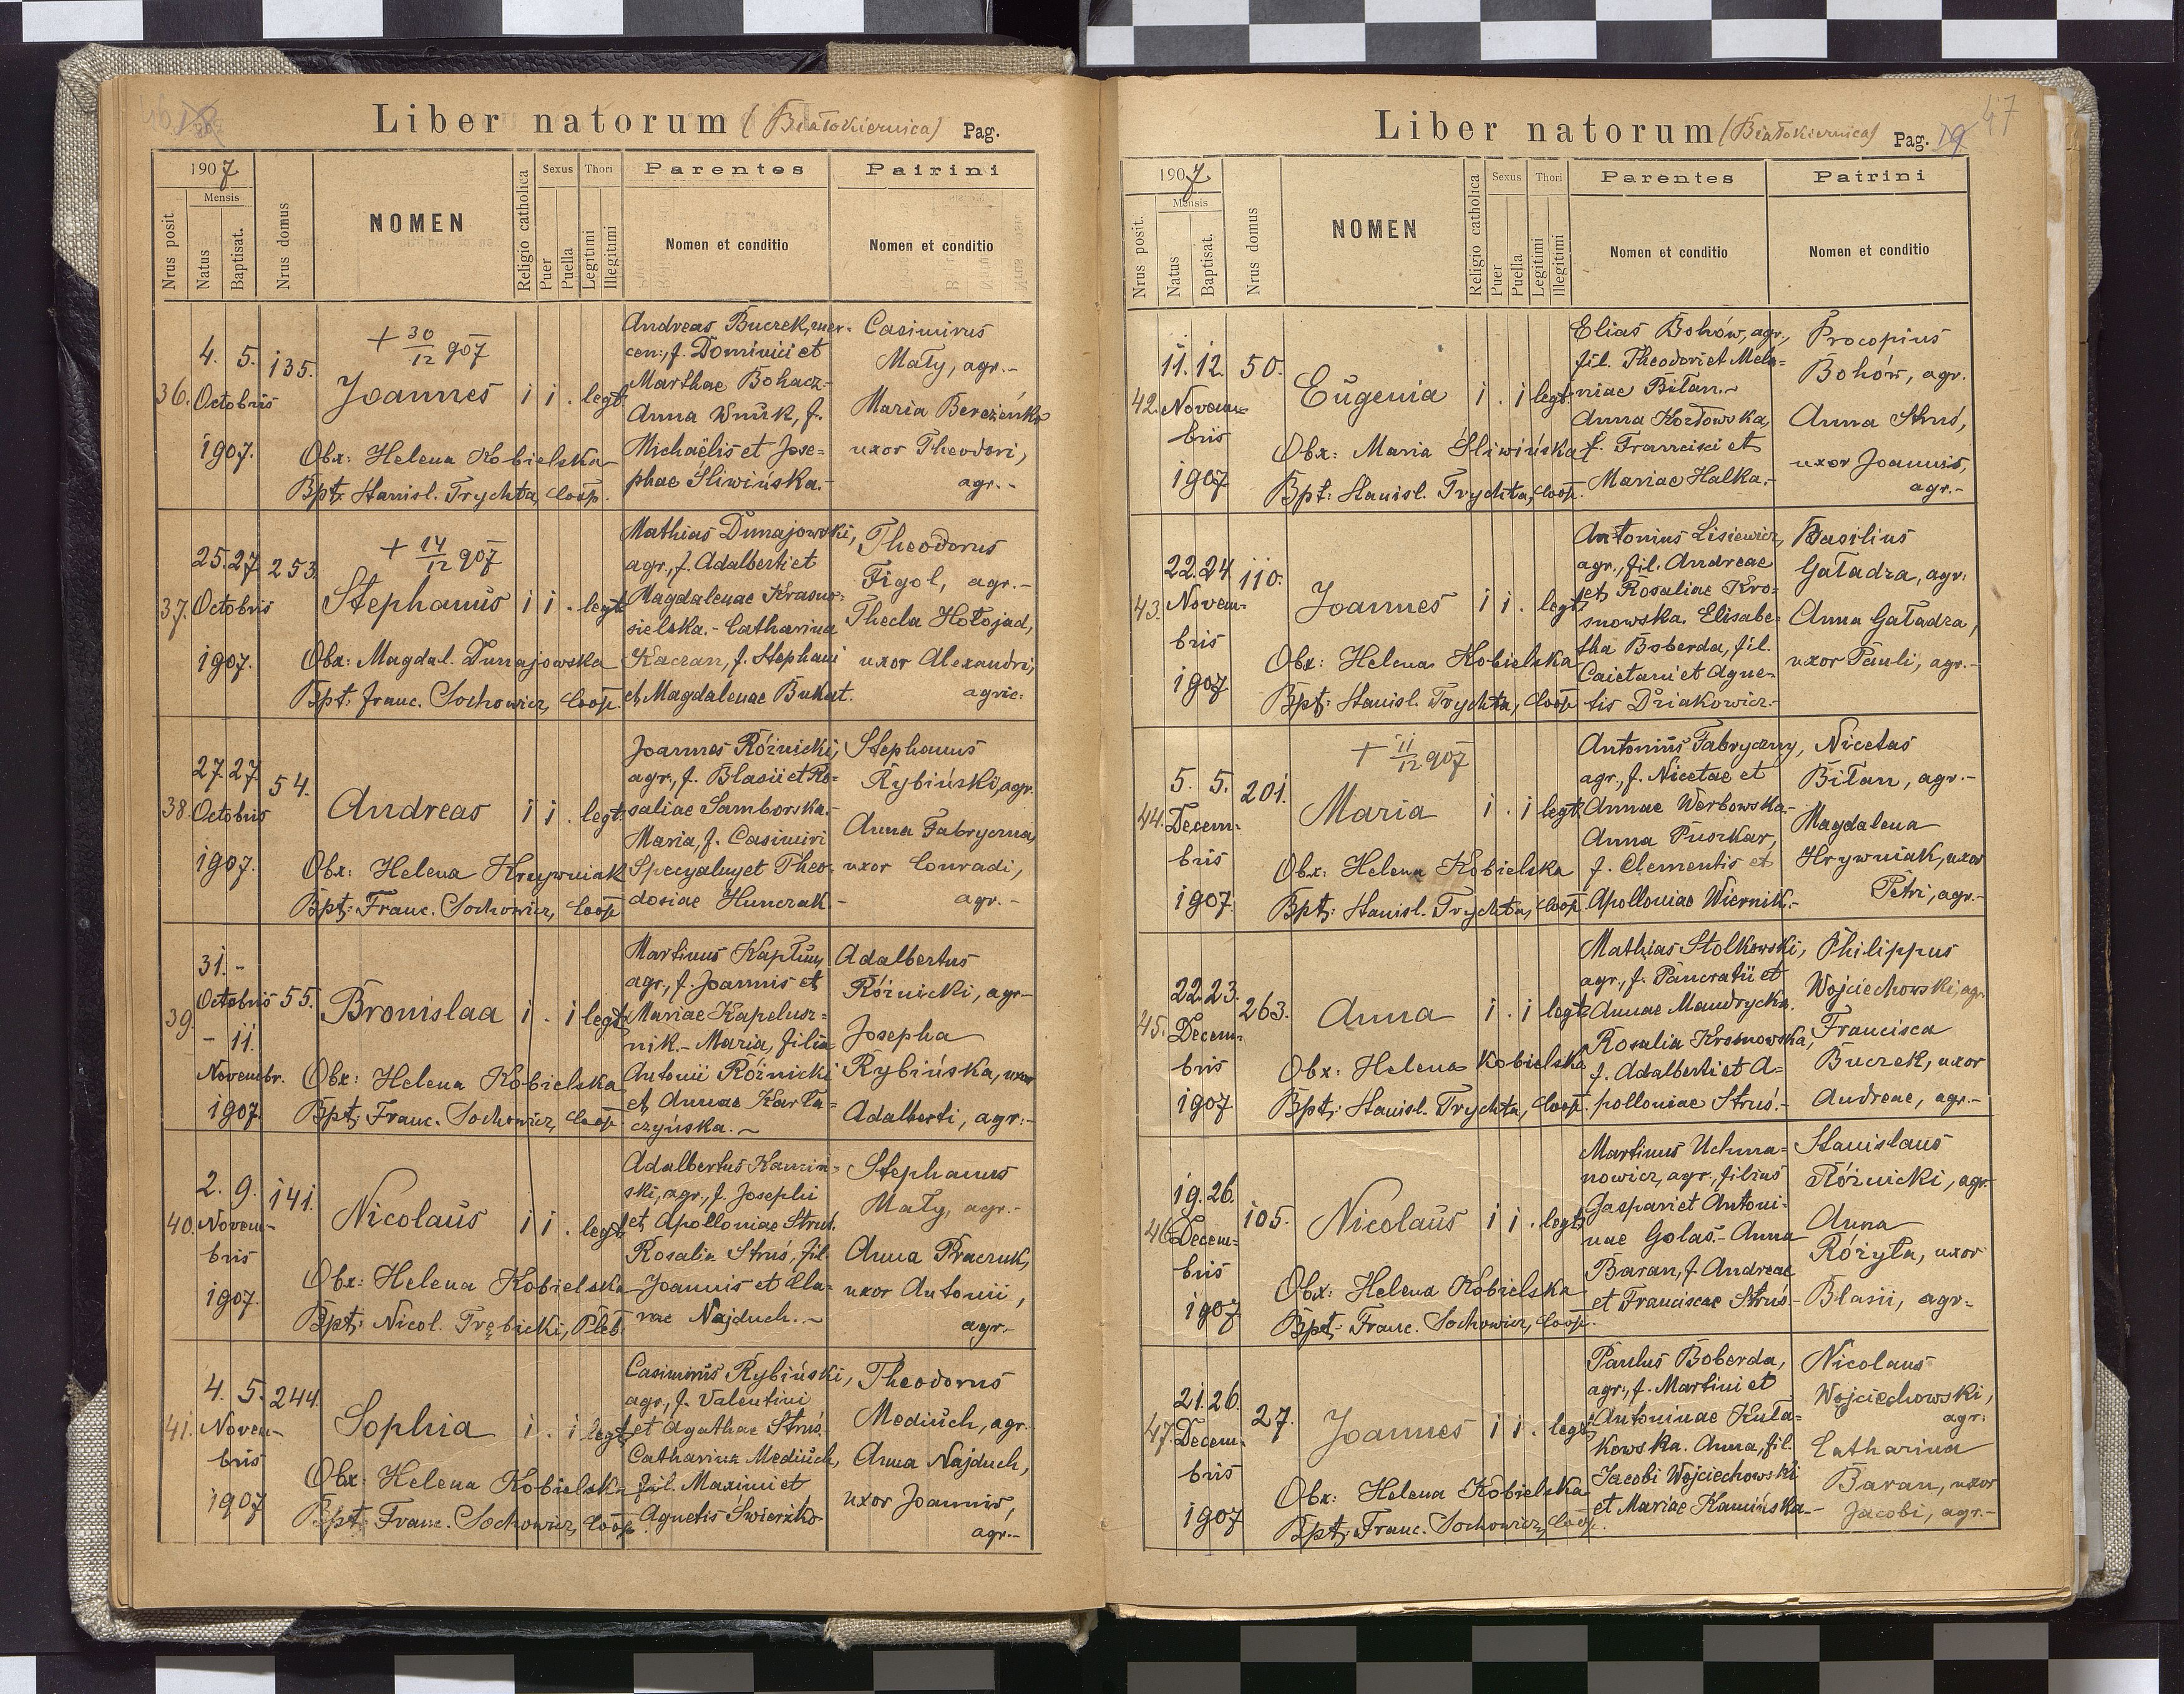 Liber natorum (Białokiernica) Pag.
1907
Mensis
Nrus posit
Natus
Baptisat.
Nrus domus
NOMEN
Religio catholica
Sexus
Puer
Puella
Thori
Legitimi
Illegitimi
Parentes
Nomen et conditio
Patrini
Nomen et conditio
36.
4. 5.
Octobris
1907.
135.
+ 30/12 907
Joannes
1 1 . legt.
Obx: Helena Kobielska
Bpt: Stanisl. Trychta, Coop.
Andreas Buczek, mer-
cen., f. Dominici et
Marthae Bohacz.-
Anna Wnuk, f.
Michaëlis et Jose-
phae Śliwińska.-
Casimirus
Mały, agr.-
Maria Bereżeńko
uxor Theodori,
agr.-
37.
25. 27.
Octobris
1907.
253.
+ 14/12 907
Stephanus
1 1 . legt.
Obx: Magdal. Dunajowska
Bpt: Franc. Sochowicz, Coop.
Mathias Dunajowski,
agr., f. Adalberti et
Magdalenae Krasno-
sielska.- Catharina
Kaczan, f. Stephani
et Magdalenae Bukat.
Theodorus
Figol, agr.-
Thecla Hołojad,
uxor Alexandri,
agric.
38.
27. 27.
Octobris
1907.
54.
Andreas
1 1 . legt.
Obx: Helena Hrywniak
Bpt: Franc. Sochowicz, Coop.
Joannes Różnicki,
agr., f. Blasii et Ro-
saliae Samborska.-
Maria, f. Casimiri
Specyalny et Theo-
dosiae Hunczak.-
Stephanus
Rybiński, agr.
Anna Fabryczna,
uxor Conradi,
agr.-
39.
31.-
Octobris
- 11.
Novembr.
1907.
55.
Bronislaa
1 . 1 legt.
Obx: Helena Kobielska
Bpt: Franc. Sochowicz, Coop.
Martinus Kapłun,
agr., f. Joannis et
Mariae Kapelusz-
nik.- Maria, filia
Antonii Różnicki
et Annae Karta-
czyńska.-
Adalbertus
Różnicki, agr.-
Josepha
Rybińska, uxor
Adalberti, agr.-
40.
2. 9.
Novem-
bris
1907.
141.
Nicolaus
1 1 . legt.
Obx: Helena Kobielska
Bpt: Nicol. Trębicki, Pleb.
Adalbertus Kamiń-
ski, agr., f. Josephi
et Apolloniae Struś.
Rosalia Struś, fil.
Joannis et Cla-
rae Najduch.-
Stephanus
Mały, agr.-
Anna Praczuk,
uxor Antonii,
agr.-
41.
4. 5.
Novem-
bris
1907
244.
Sophia
1 . 1 legt.
Obx: Helena Kobielska
Bpt: Franc. Sochowicz, Coop.
Casimirus Rybiński,
agr., f. Valentini
et Agathae Struś.
Catharina Mediuch,
fil. Maximi et
Agnetis Świerzko.
Theodorus
Mediuch, agr.
Anna Najduch,
uxor Joannis,
agr.-
47
Liber natorum (Białokiernica) Pag. 19
1907
Mensis
Nrus posit.
Natus
Baptisat.
Nrus domus
NOMEN
Religio catholica
Sexus
Puer
Puella
Thori
Legitimi
Illegitimi
Parentes
Nomen et conditio
Patrini
Nomen et conditio
42.
11. 12.
Novem-
bris
1907
50.
Eugenia
1 . 1 legt.
Obx: Maria Śliwińska
Bpt: Stanisl. Trychta, Coop.
Elias Bohów, agr.,
fil. Theodori et Mela-
niae Bitan.-
Anna Kozłowska,
f. Francisci et
Mariae Halka.-
Procopius
Bohów, agr.
Anna Struś,
uxor Joannis,
agr.-
43.
22. 24.
Novem-
bris
1907
110.
Joannes
1 1 . legt.
Obx: Helena Kobielska
Bpt: Stanisl. Trychta, Coop.
Antonius Lisiewicz,
agr., fil. Andreae
et Rosaliae Kro-
snowska. Elisabe-
tha Boberda, fil.
Caietani et Agne-
tis Dziakowicz.-
Basilius
Gaładza, agr.
Anna Gaładza,
uxor Pauli, agr.-
44.
5. 5.
Decem-
bris
1907.
201.
+ 11/12 907
Maria
1 . 1 legt.
Obx: Helena Kobielska
Bpt: Stanisl. Trychta, Coop.
Antonius Fabryczny,
agr., f. Nicetae et
Annae Werbowska.-
Anna Puszkar,
f. Clementis et
Apolloniae Wiernik.-
Nicetas
Bitan, agr.-
Magdalena
Hrywniak, uxor
Petri, agr.-
45.
22. 23.
Decem-
bris
1907
263.
Anna
1 . 1 legt.
Obx: Helena Kobielska
Bpt: Stanisl. Trychta, Coop.
Mathias Stolkowski,
agr., f. Pancratii et
Annae Mandrycka.
Rosalia Krosnowska,
f. Adalberti et A-
polloniae Struś.-
Philippus
Wojciechowski, agr.
Francisca
Buczek, uxor
Andreae, agr.-
46.
19. 26.
Decem-
bris
1907
105.
Nicolaus
1 1 . legt.
Obx: Helena Kobielska
Bpt: Franc. Sochowicz, Coop.
Martinus Uchma-
nowicz, agr., filius
Gaspari et Antoni-
nae Golas.- Anna
Baran, f. Andreae
et Franciscae Struś.-
Stanislaus
Różnicki, agr.
Anna
Różyła, uxor
Blasii, agr.-
47.
21. 26.
Decem-
bris
1907
27.
Joannes
1 1 . legt.
Obx: Helena Kobielska
Bpt: Franc. Sochowicz, Coop.
Paulus Boberda,
agr., f. Martini et
Antoninae Kuła-
kowska. Anna, fil.
Jacobi Wojciechowski
et Mariae Kamińska.-
Nicolaus
Wojciechowski,
agr.
Catharina
Baran, uxor
Jacobi, agr.-